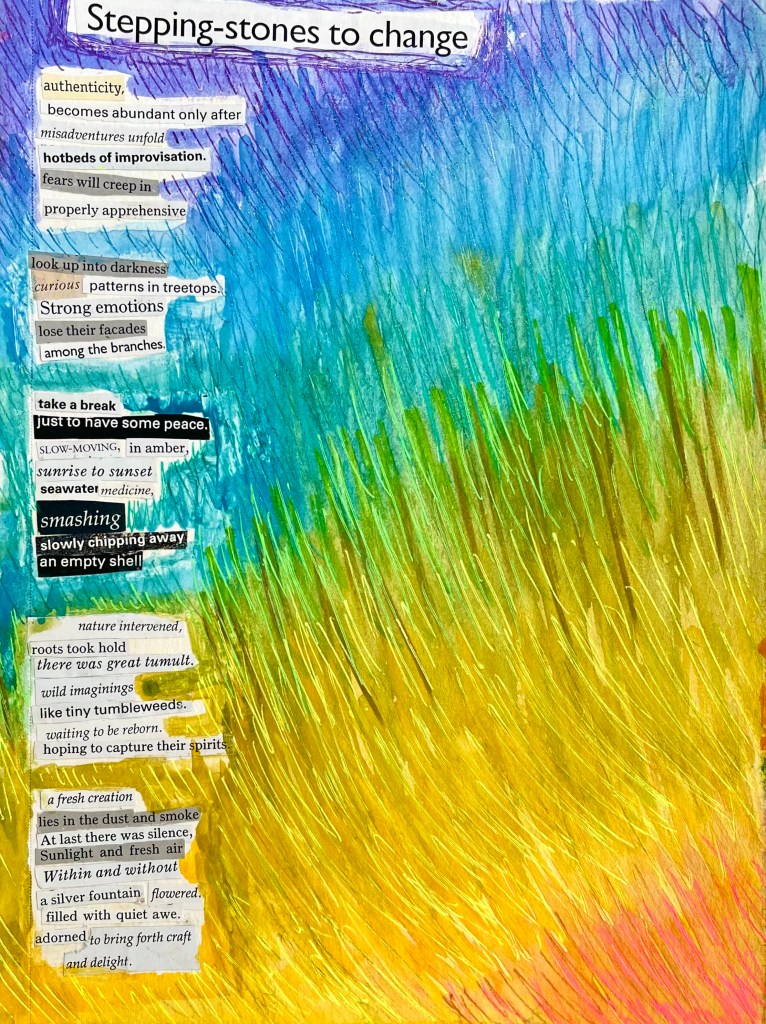 Stepping-stones to change
authenticity,
becomes abundant only after
misadventures unfold
hotbeds of improvisation.
fears will creep in
properly apprehensive
look up into darkness
curious patterns in treetops.
Strong emotions
lose their facades
among the branches.
take a break
just to have some peace.
SLOW-MOVING, in amber,
sunrise to sunset
seawater medicine,
smashing
slowly chipping away
an empty shell
nature intervened,
roots took hold
there was great tumult.
wild imaginings
like tiny tumbleweeds.
waiting to be reborn.
hoping to capture their spirits.
a fresh creation
lies in the dust and smoke
At last there was silence,
Sunlight and fresh air
Within and without
a silver fountain flowered.
filled with quiet awe.
adorned to bring forth craft
and delight.